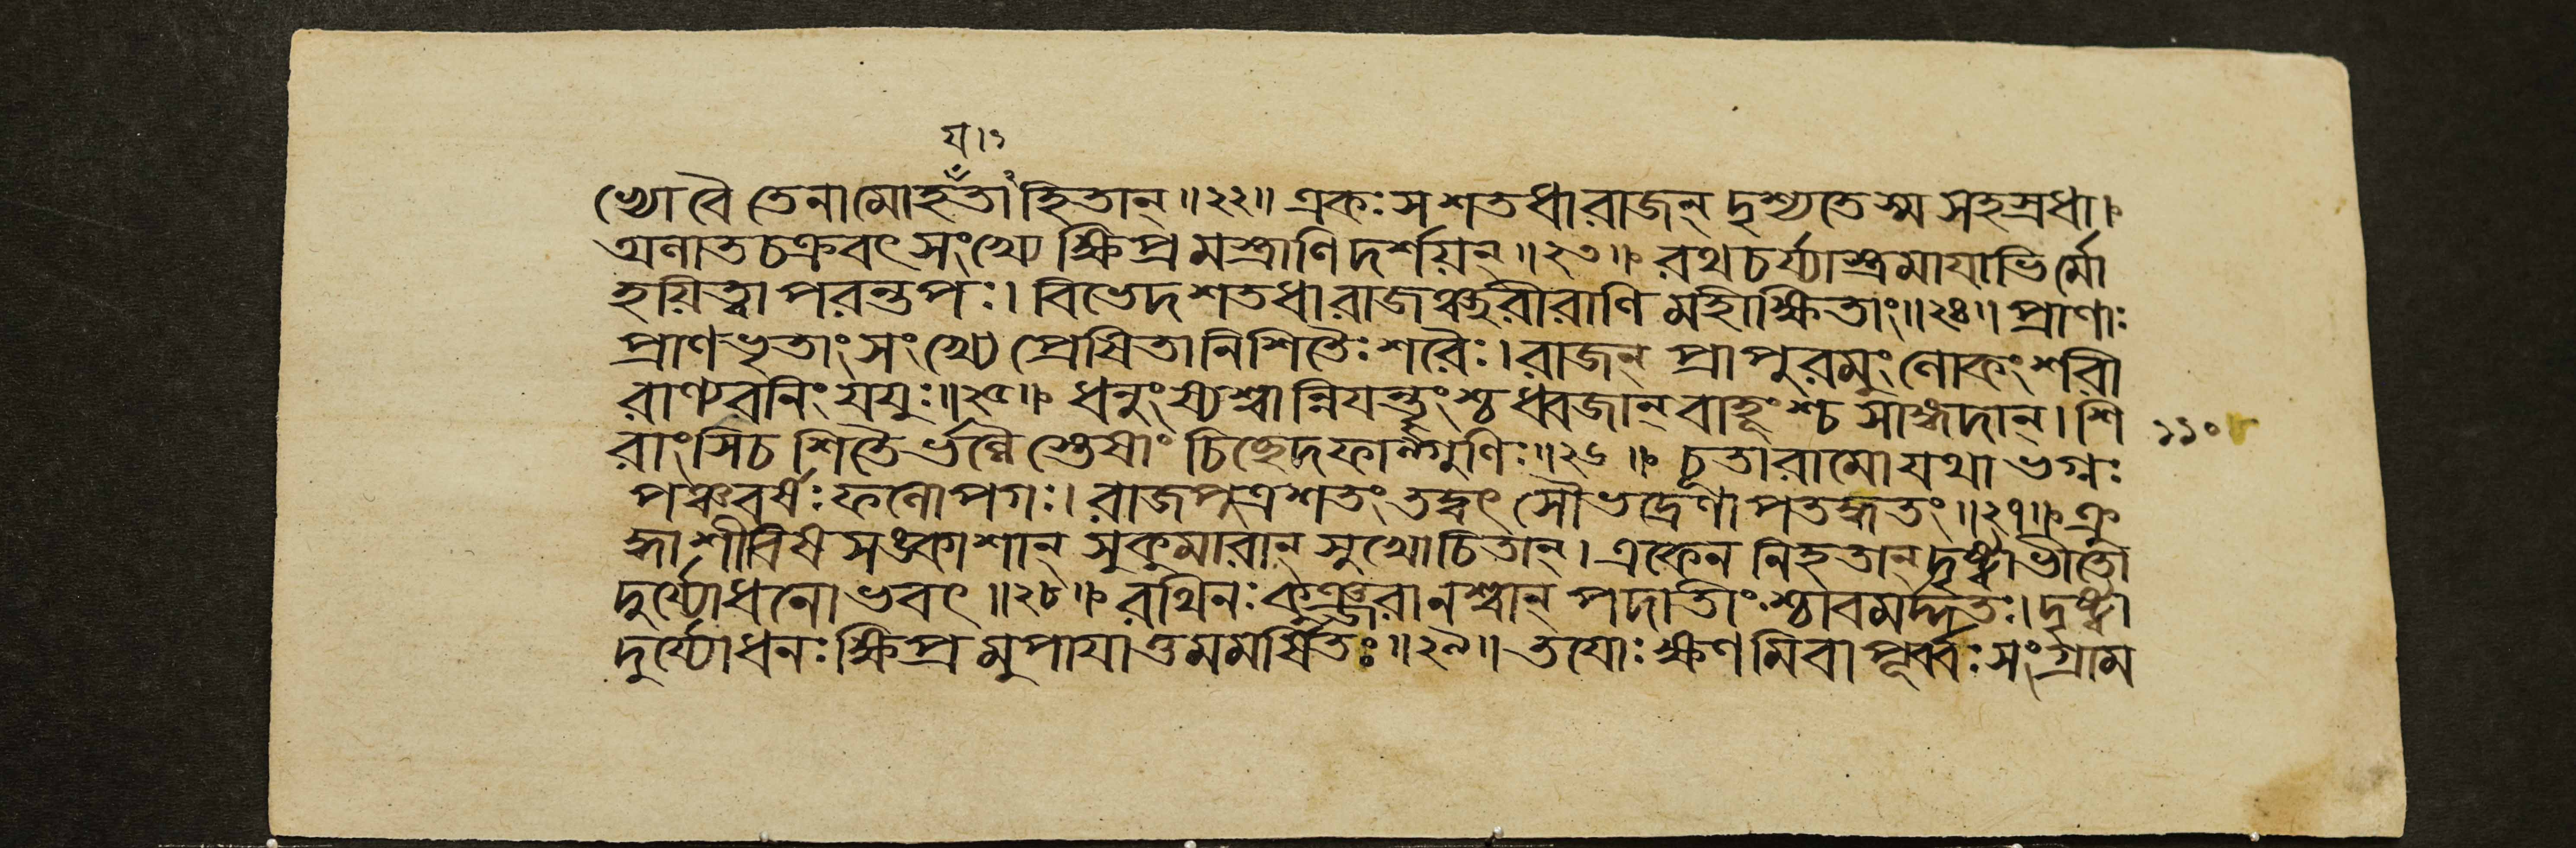 য।১
খ্যো বৈ তেনামোহতাঁহিতান্॥২২॥ একঃ স শতধা রাজন্ দৃশ্যতে স্ম সহস্রধা।
অলাতচক্রবৎ সংখ্যে ক্ষিপ্রমস্ত্রাণি দর্শয়ন্॥২৩॥ রথচর্য্যাস্ত্রমাযাভির্মো
হয়িত্বা পরন্তপঃ। বিভেদ শতধা রাজঞ্চরীরাণি মহীক্ষিতাং॥২৪॥ প্রাণাঃ
প্রাণভৃতাং সংখ্যে প্রেষিতা নিশিতৈঃ শরৈঃ। রাজন্ প্রাপুরমুং লোকং শরী
রাণ্যবনিং যযুঃ॥২৫॥ ধনুংষ্যশ্বান্নিযন্তৃংশ্চ ধ্বজান্ বাহূংশ্চ সাঙ্গদান্। শি
রাংসি চ শিতৈর্ভল্লৈস্তেষাং চিচ্ছেদ ফাল্গুণিঃ॥২৬॥ চূতারামো যথা ভগ্নঃ
পঞ্চবর্ষঃ ফলোপগঃ। রাজপুত্রশতং তদ্বৎ সৌভদ্রেণাপতদ্ধতং॥২৭॥ ক্রু
দ্ধাশীবিষসঙ্কাশান্ সুকুমারান্ সুখোচিতান্। একেন নিহতান্ দৃষ্ট্বা ভীতো
দুর্য্যোধনোভবৎ॥২৮॥ রথিনঃ কুঞ্জরানশ্বান্ পদাতীংশ্চাবমর্দ্দতঃ। দৃষ্ট্বা
দুর্য্যোধনঃ ক্ষিপ্রমুপাযাত্তমমর্ষিতঃ॥২৯॥ তযোঃ ক্ষণমিবাপূর্ব্বঃ সংগ্রাম
১১০